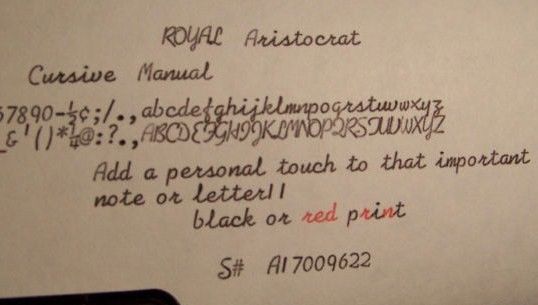 ROYAL Aristocrat
Cursive Manual
67890-½¢;/.,abcdefghijklmnpoqrstuvwxyz
_&'()*¼@:?.,ABCDEFGHIJKLMNOPQRSTUVWXYZ
Add a personal touch to that important
note or letter!!
black or red print
S# AI7009622